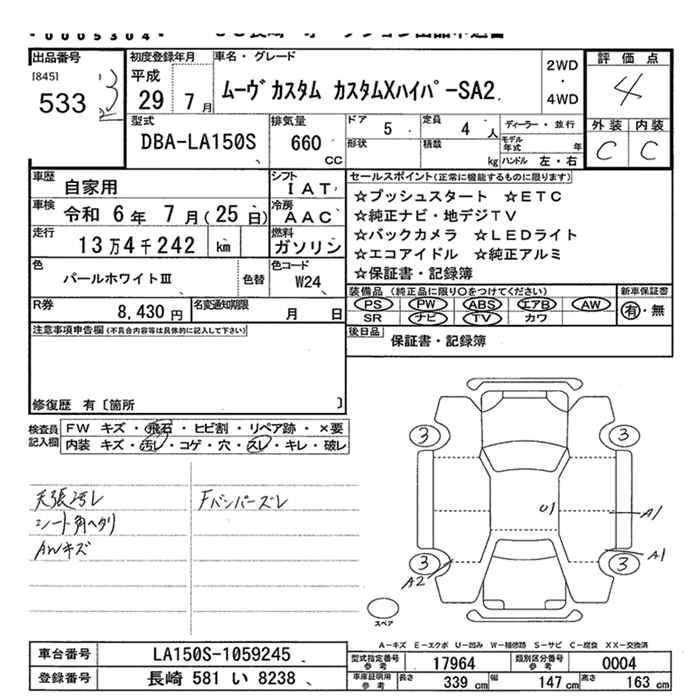 * 0 0 0 5 3 0 4 *
出品番号 初度登録年月 車名・グレード 評価点
[845] 平成 2WD
533 29 7月 ムーヴ カスタム カスタムXハイパーSA2 ・ 4
4WD
型式 排気量 ドア 5 定員 4人 ディーラー・並行 外装 内装
DBA-LA150S 660 CC 形状 積数 kg モデル年式 年 C C
ハンドル 左・右
車歴 自家用 シフト IAT セールスポイント(正常に機能するものに限ります)
車検 令和 6年 7月(25日) 冷房 AAC ☆プッシュスタート ☆ETC
☆純正ナビ・地デジTV
走行 13万4千242 km 燃料 ガソリン ☆バックカメラ ☆LEDライト
☆エコアイドル ☆純正アルミ
色 パールホワイトⅢ 色替 色コード W24 ☆保証書・記録簿
装備品 (純正品に限り○をつけてください) 新車保証書
R券 8,430円 名変通知期限 月 日 PS PW ABS エアB AW 有・無
SR ナビ TV カワ
注意事項申告欄(不具合内容等は具体的に記入して下さい) 後日品 保証書・記録簿
修復歴 有〔箇所 〕
検査員記入欄 FW キズ・飛石・ヒビ割・リペア跡・×要
内装 キズ・汚レ・コゲ・穴・スレ・キレ・破レ
3 3
天張汚レ Fバンパーズレ
シート角ヘタリ U1 A1
AWキズ
3 3 A1
A2
スペア
A-キズ E-エクボ U-凹み W-補修跡 S-サビ C-腐食 XX-交換済
車台番号 LA150S-1059245 型式指定番号 参考 17964 類別区分番号 参考 0004
登録番号 長崎 581 い 8238 車庫証明用 参考 長さ 339 cm 幅 147 cm 高さ 163 cm